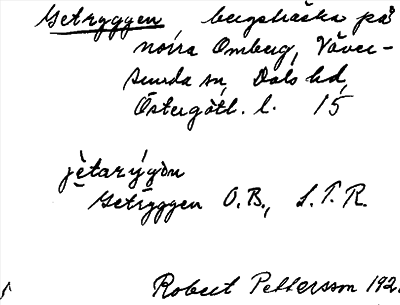 Getryggen bergsbacke på
norra Omberg, Väver-
sunda sn, Dals hd,
Östergötl. l. 15
jètarýgdn
Getryggen O.B., L.T.R.
Robert Pettersson 192